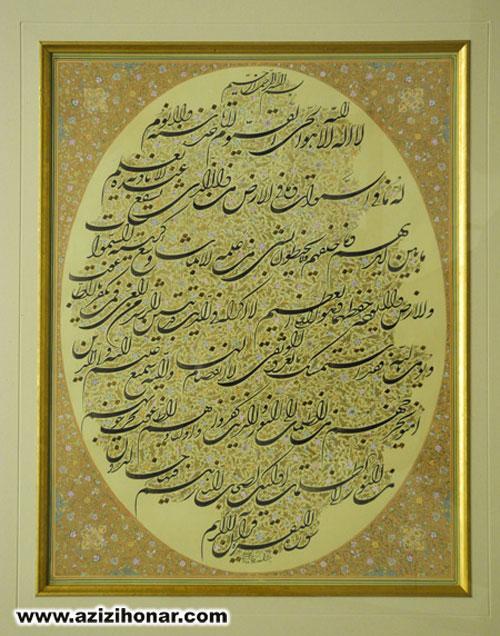 بسم الله الرحمن الرحیم
الله لا اله الا هو الحی القیوم لا تاخذه سنة ولا نوم
له ما فی السموات و ما فی الارض من ذا الذی یشفع عنده الا باذنه یعلم
ما بین ایدیهم و ما خلفهم ولا یحیطون بشی من علمه الا بما شاء وسع کرسیه السموات
والارض ولا یوده حفظهما وهو العلی العظیم لا اکراه فی الدین قد تبین الرشد من الغی فمن یکفر بالطاغوت
ویومن بالله فقد استمسک بالعروة الوثقی لا انفصام لها والله سمیع علیم الله ولی الذین
آمنوا یخرجهم من الظلمات الی النور والذین کفروا اولیاوهم الطاغوت یخرجونهم
من النور الی الظلمات اولئک اصحاب النار هم فیها خالدون
سورة البقرة قرآن الکریم
www.azizihonar.com